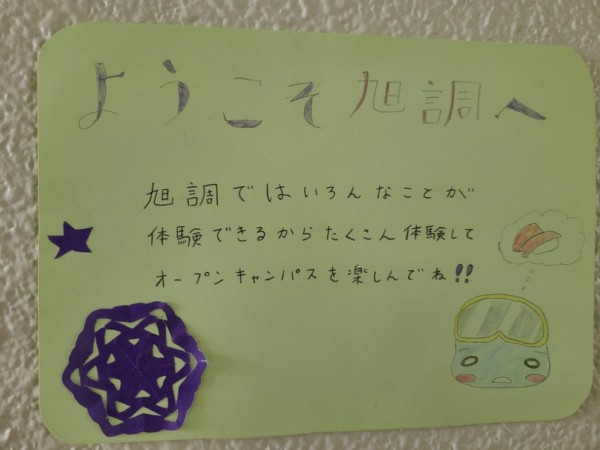 ようこそ旭調へ
旭調ではいろんなことが
体験できるからたくさん体験して
オープンキャンパスを楽しんでね!!